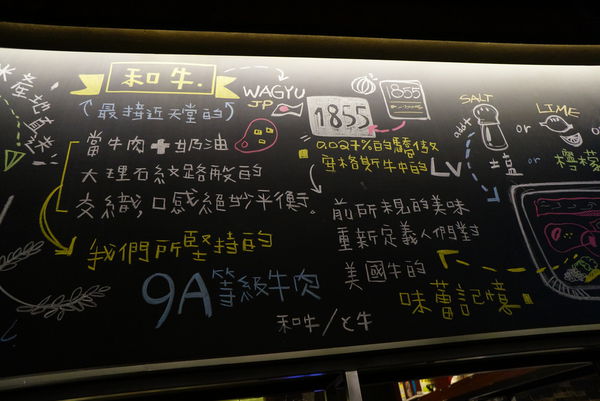 產地直送
和牛.
最接近天堂的
WAGYU
JP
當牛肉+奶油
大理石紋路般的
交織,口感絕妙平衡.
我們所堅持的
9A等級牛肉
和牛/と牛
1855
1855
0.027%的驕傲
安格斯牛中的LV
前所未見的美味
重新定義人們對
美國牛的
味蕾記憶
SALT
add
or
LIME
or
鹽
or
檸檬